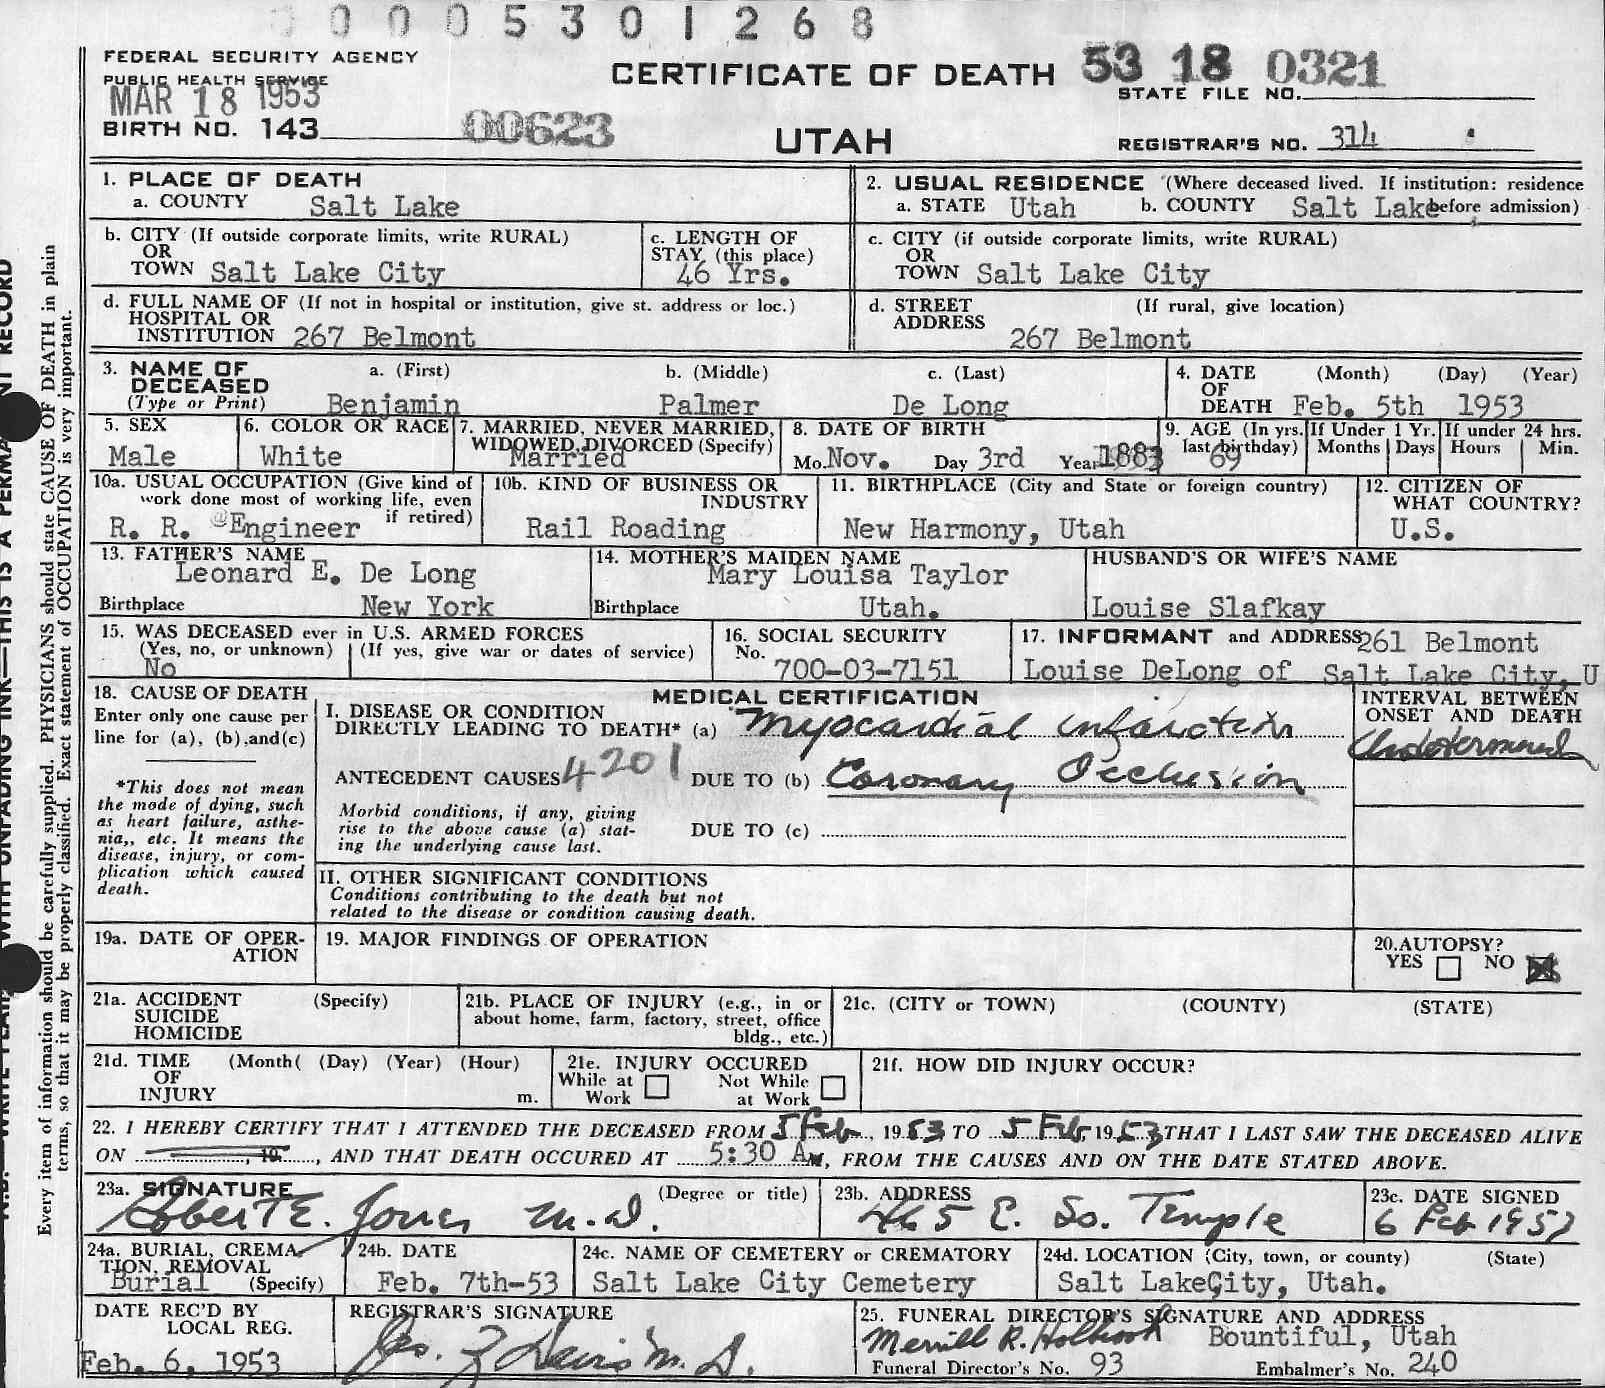 0 0 0 5 3 0 1 2 6 8
FEDERAL SECURITY AGENCY
PUBLIC HEALTH SERVICE
MAR 18 1953
CERTIFICATE OF DEATH 53 18 0321
STATE FILE NO.
BIRTH NO. 143 00623
UTAH
REGISTRAR'S NO. 314
1. PLACE OF DEATH
a. COUNTY Salt Lake
2. USUAL RESIDENCE (Where deceased lived. If institution: residence
a. STATE Utah b. COUNTY Salt Lake before admission)
b. CITY (If outside corporate limits, write RURAL)
OR
TOWN Salt Lake City
c. LENGTH OF
STAY (this place)
46 Yrs.
c. CITY (if outside corporate limits, write RURAL)
OR
TOWN Salt Lake City
d. FULL NAME OF (If not in hospital or institution, give st. address or loc.)
HOSPITAL OR
INSTITUTION 267 Belmont
d. STREET (If rural, give location)
ADDRESS
267 Belmont
3. NAME OF a. (First) b. (Middle) c. (Last)
DECEASED
(Type or Print) Benjamin Palmer De Long
4. DATE (Month) (Day) (Year)
OF
DEATH Feb. 5th 1953
5. SEX
Male
6. COLOR OR RACE
White
7. MARRIED, NEVER MARRIED,
WIDOWED, DIVORCED (Specify)
Married
8. DATE OF BIRTH
Mo. Nov. Day 3rd Year 1883
9. AGE (In yrs.
last birthday)
69
If Under 1 Yr.
Months Days
If under 24 hrs.
Hours Min.
10a. USUAL OCCUPATION (Give kind of
work done most of working life, even
if retired)
R. R. Engineer
10b. KIND OF BUSINESS OR
INDUSTRY
Rail Roading
11. BIRTHPLACE (City and State or foreign country)
New Harmony, Utah
12. CITIZEN OF
WHAT COUNTRY?
U.S.
13. FATHER'S NAME
Leonard E. De Long
Birthplace New York
14. MOTHER'S MAIDEN NAME
Mary Louisa Taylor
Birthplace Utah.
HUSBAND'S OR WIFE'S NAME
Louise Slafkay
15. WAS DECEASED ever in U.S. ARMED FORCES
(Yes, no, or unknown) (If yes, give war or dates of service)
No
16. SOCIAL SECURITY
No. 700-03-7151
17. INFORMANT and ADDRESS 261 Belmont
Louise DeLong of Salt Lake City, U
18. CAUSE OF DEATH
Enter only one cause per
line for (a), (b),and(c)
*This does not mean
the mode of dying, such
as heart failure, asthe-
nia,, etc. It means the
disease, injury, or com-
plication which caused
death.
MEDICAL CERTIFICATION
I. DISEASE OR CONDITION
DIRECTLY LEADING TO DEATH* (a) Myocardial infarction
ANTECEDENT CAUSES 4201 DUE TO (b) Coronary Occlusion
Morbid conditions, if any, giving
rise to the above cause (a) stat-
ing the underlying cause last.
DUE TO (c)
INTERVAL BETWEEN
ONSET AND DEATH
Undetermined
II. OTHER SIGNIFICANT CONDITIONS
Conditions contributing to the death but not
related to the disease or condition causing death.
19a. DATE OF OPER-
ATION
19. MAJOR FINDINGS OF OPERATION
20. AUTOPSY?
YES NO
21a. ACCIDENT (Specify)
SUICIDE
HOMICIDE
21b. PLACE OF INJURY (e.g., in or
about home, farm, factory, street, office
bldg., etc.)
21c. (CITY or TOWN) (COUNTY) (STATE)
21d. TIME (Month( (Day) (Year) (Hour)
OF
INJURY m.
21e. INJURY OCCURED
While at Not While
Work at Work
21f. HOW DID INJURY OCCUR?
22. I HEREBY CERTIFY THAT I ATTENDED THE DECEASED FROM 5 Feb, 1953 TO 5 Feb, 1953 THAT I LAST SAW THE DECEASED ALIVE
ON , 19 , AND THAT DEATH OCCURED AT 5:30 A m, FROM THE CAUSES AND ON THE DATE STATED ABOVE.
23a. SIGNATURE (Degree or title)
Robert E. Jones M.D.
23b. ADDRESS
465 E. So. Temple
23c. DATE SIGNED
6 Feb 1953
24a. BURIAL, CREMA-
TION, REMOVAL
Burial (Specify)
24b. DATE
Feb. 7th-53
24c. NAME OF CEMETERY or CREMATORY
Salt Lake City Cemetery
24d. LOCATION (City, town, or county) (State)
Salt Lake City, Utah.
DATE REC'D BY
LOCAL REG.
Feb. 6, 1953
REGISTRAR'S SIGNATURE
Jas. Z Davis M.D.
25. FUNERAL DIRECTOR'S SIGNATURE AND ADDRESS
Merrill R. Holbrook Bountiful, Utah
Funeral Director's No. 93 Embalmer's No. 240
Every item of information should be carefully supplied. PHYSICIANS should state CAUSE OF DEATH in plain
terms, so that it may be properly classified. Exact statement of OCCUPATION is very important.
WITH UNFADING INK—THIS IS A PERMA NT RECORD